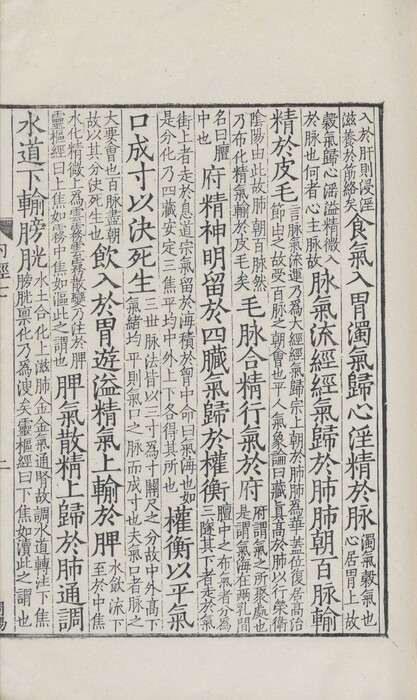 入於肝則浸淫
滋養於筋絡矣
食氣入胃濁氣歸心淫精於脉
濁氣穀氣也
心居胃上故
穀氣歸心淫溢精微入
於脉也何者心主脉故
脉氣流經經氣歸於肺肺朝百脉輸
精於皮毛
言脉氣流運乃為大經經氣歸宗上朝於肺肺為華蓋位復居高治
節由之故受百脉之朝會也平人氣象論曰藏真高於肺以行榮衛
陰陽由此故肺朝百脉然
乃布化精氣輸於皮毛矣
毛脉合精行氣於府
府謂氣之所聚處也
是謂氣海在兩乳間
名曰膻
中也
府精神明留於四臟氣歸於權衡
膻中之布氣者分為
三隧其下者走於氣
街上者走於息道宗氣留於海積於胷中命曰氣海也如
是分化乃四藏安定三焦平均中外上下各得其所也
權衡以平氣
口成寸以決死生
三世脉法皆以三寸為寸關尺之分故中外高下
氣緒均平則氣口之脉而成寸也夫氣口者脉之
大要會也百脉盡朝
故以其分決死生也
飲入於胃遊溢精氣上輸於脾
水飲流下
至於中焦
水化精微上為雲霧雲霧散變乃注於脾
靈樞經曰上焦如霧中焦如漚此之謂也
脾氣散精上歸於肺通調
水道下輸膀胱
水土合化上滋肺金金氣通腎故調水道轉注下焦
膀胱禀化乃為溲矣靈樞經曰下焦如瀆此之謂也